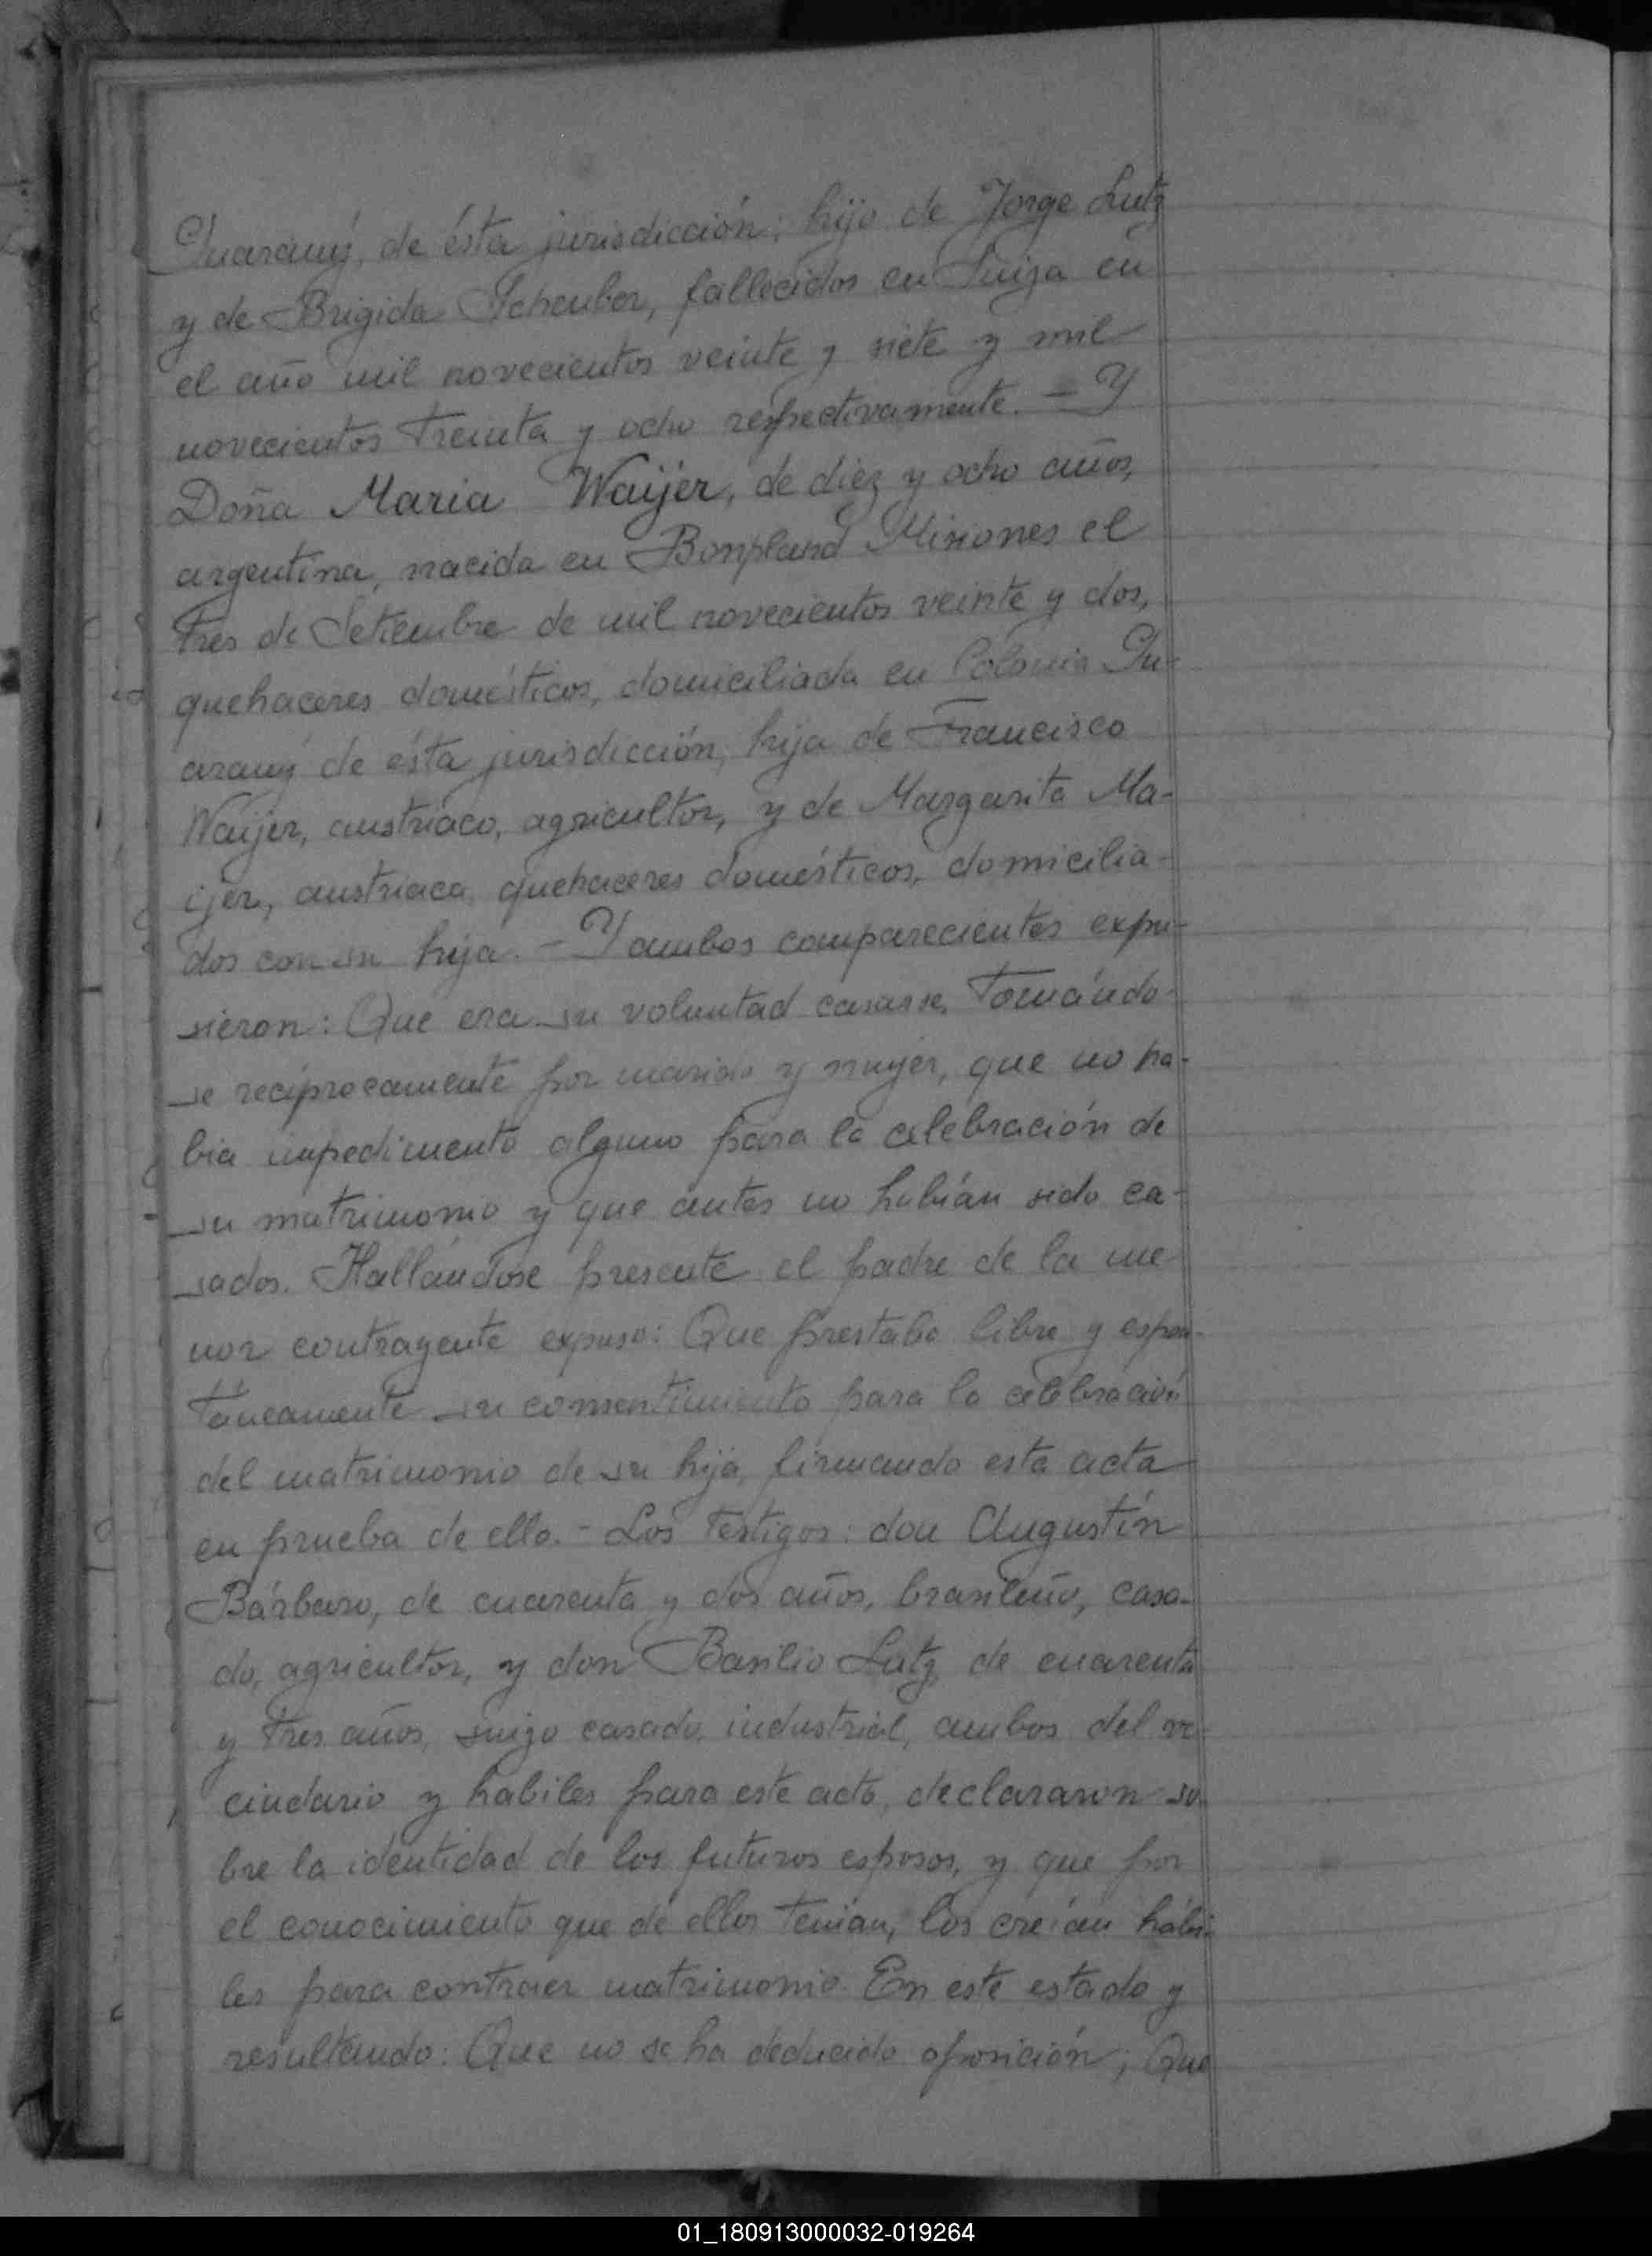 Guarany, de ésta jurisdicción; hijo de Jorge Lutz
y de Brigida Scheuber, fallecidos en Suiza en
el año mil novecientos veinte y siete y mil
novecientos treinta y ocho respectivamente. - Y
Doña Maria Waijer, de diez y ocho años,
argentina, nacida en Bonpland Misiones el
tres de Setiembre de mil novecientos veinte y dos,
quehaceres domésticos, domiciliada en Colonia Gu-
arany de ésta jurisdicción, hija de Francisco
Waijer, austríaco, agricultor, y de Margarita Ma-
ijer, austríaca, quehaceres domésticos, domicilia-
dos con su hija. - Y ambos comparecientes expu-
sieron: Que era su voluntad casarse, tomándo-
se recíprocamente por marido y mujer, que no ha-
bia impedimento alguno para la celebración de
su matrimonio y que antes no habían sido ca-
sados. Hallándose presente el padre de la me-
nor contrayente expuso: Que prestaba libre y espon-
táneamente su consentimiento para la celebración
del matrimonio de su hija, firmando esta acta
en prueba de ello. - Los testigos: don Augustín
Bárbaro, de cuarenta y dos años, brasileño, casa-
do, agricultor, y don Basilio Lutz, de cuarenta
y tres años, suizo casado, industrial, ambos del ve-
cindario y habiles para este acto, declararon so-
bre la identidad de los futuros esposos, y que por
el conocimiento que de ellos tenían, los creían hábi-
les para contraer matrimonio. En este estado y
resultando: Que no se ha deducido oposición; Que
01_180913000032-019264